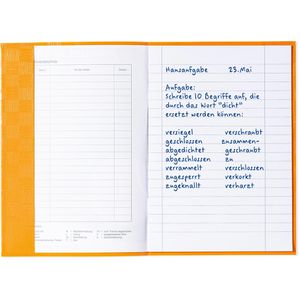 Hausaufgabe 23. Mai
Aufgabe:
Schreibe 10 Begriffe auf, die
durch das Wort "dicht"
ersetzt werden können:
versiegel verschraubt
geschlossen zusammen-
abgedichtet geschraubt
abgeschlossen zu
verrammelt verschlossen
zugesperrt verkorkt
zugeknallt verharzt